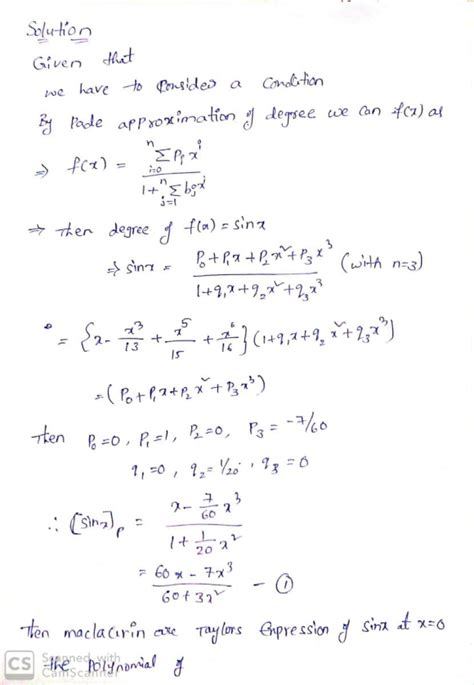 Solution
Given that
we have to Consider a Condition
By Pade approximation of degree we can f(x) as
⇒ f(x) = n Σ i=0 Pi x^i / 1 + n Σ j=1 bj x^j
⇒ Then degree of f(x) = sin x
⇒ sin x = P0 + P1x + P2x² + P3x³ / 1 + q1x + q2x² + q3x³ (with n=3)
= {x - x³/13 + x⁵/15 + x⁶/16} (1 + q1x + q2x² + q3x³)
= (P0 + P1x + P2x² + P3x³)
Then P0 = 0, P1 = 1, P2 = 0, P3 = -7/60
q1 = 0, q2 = 1/20, q3 = 0
∴ [sin x]p = x - 7/60 x³ / 1 + 1/20 x²
= 60x - 7x³ / 60 + 3x² - ①
Then maclacirin are Taylors Expression of sinx at x=0
the polynomial of
CS Scanned with
CamScanner